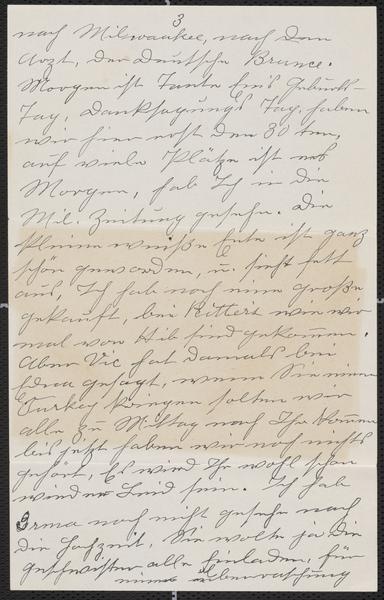 3
nach Milwaukee, nach dem
Arzt, der Deutsche Brunce.
Morgen ist Tante Em's Geburts-
Tag, Danksagungs Tag, haben
wir hier erst den 30 ten,
auf viele Plätze ist es
Morgen, hab Ich in die
Mil. Zeitung gesehn. Die
kleine weiße Ente ist ganz
schön geworden, u. sieht fett
aus, Ich hab noch eine große
gekauft, bei Ritters wie wir
mal von Hib sind gekommen.
Aber Vic hat damals bei
Edna gesagt, wenn Sie einen
Turkey kriegen sollten wir
alle zu Mittag nach Ihr kommen
bis jetzt haben wir noch nichts
gehört, Es wird Ihr wohl schon
wieder Leid sein. Ich hab
Irma noch nicht gesehn nach
die Hochzeit, Sie wollte ja die
Geschwister alle Einladen, für
eine überraschung